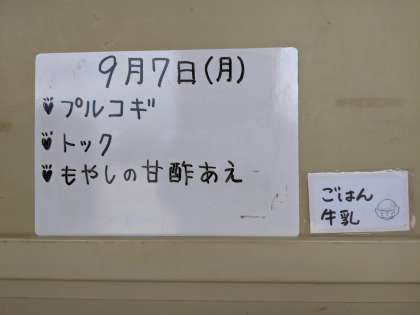 9月7日(月)
プルコギ
トック
もやしの甘酢あえ
ごはん
牛乳